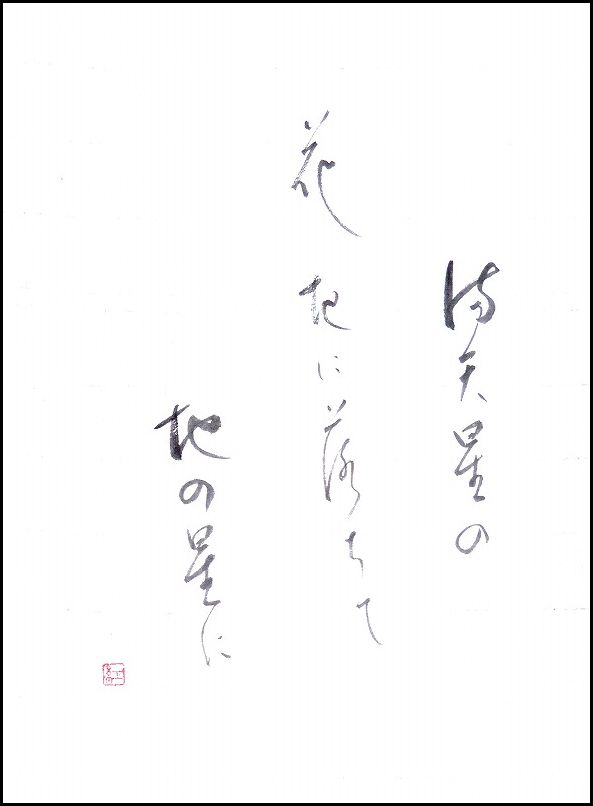 満天星の
花地に落ちて
地の星に